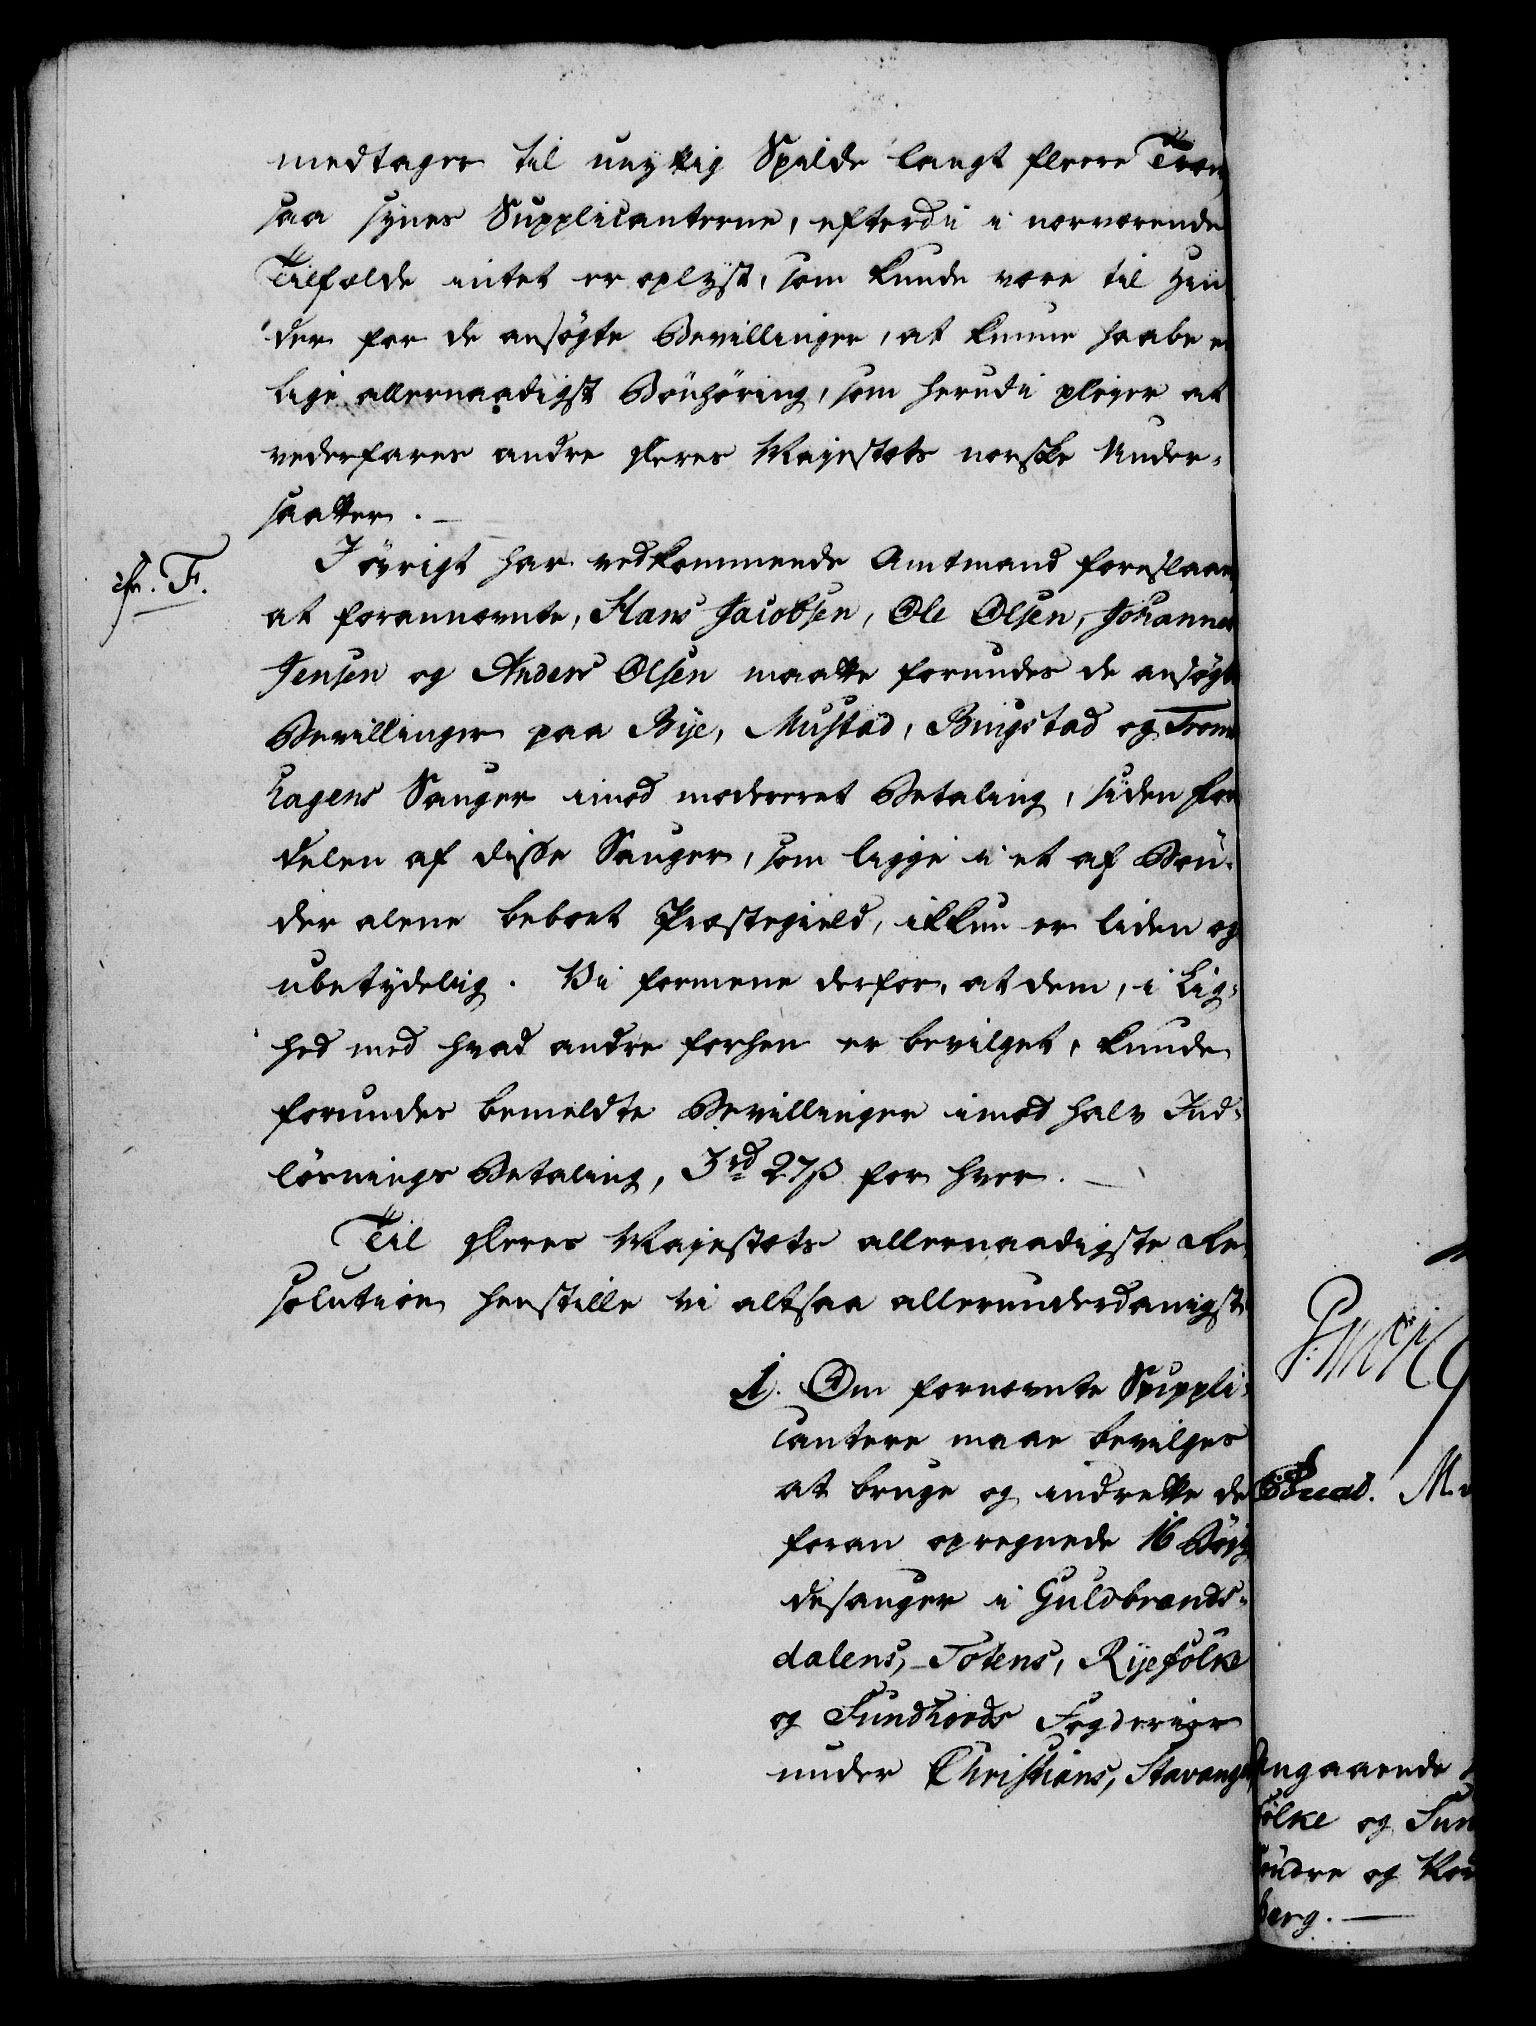 medtager til unyttig Spilde langt fleere Træer,
saa synes Supplicanterne, efterdi i nærværende
Tilfælde intet er oplyst, som kunde være til Hin-
der for de ansøgte Bevillinger, at kunne haabe en
lige allernaadigst Bönhöring, som herudi pleger at
vederfares andre Deres Majestæts norske Under-
saatter. —
cfr. F.
I övrigt har vedkommende Amtmand foreslaaet,
at forannævnte, Hans Jacobsen, Ole Olsen, Johannes
Jensen og Anders Olsen maatte forundes de ansøgte
Bevillinger paa Bije, Mustad, Bingstad og Trom
hagens Sauger imod modereret Betaling, siden For
delen af disse Sauger, som ligge i et af Bön-
der alene beboet Præstegield, ikkun er liden og
ubetydelig. Vi formene derfor, at dem, i Lig-
hed med hvad andre forhen er bevilget, kunde
forundes bemeldte Bevillinger imod halv Ind-
lösnings Betaling, 3 rd 27 ß for hver. —
Til Deres Majestæts allernaadigste Re-
solution henstille vi altsaa allerunderdanigst
1. Om fornævnte Suppli-
cantere maae bevilges
at bruge og indrette de
foran opregnede 16 Böig
desauger i Guldbrands-
dalens, Totens, Rijefölke
og Sundhords Fogderier
under Christians, Stavanger
ngaaende
ölke og Sun
öndre og Nor
berg. —